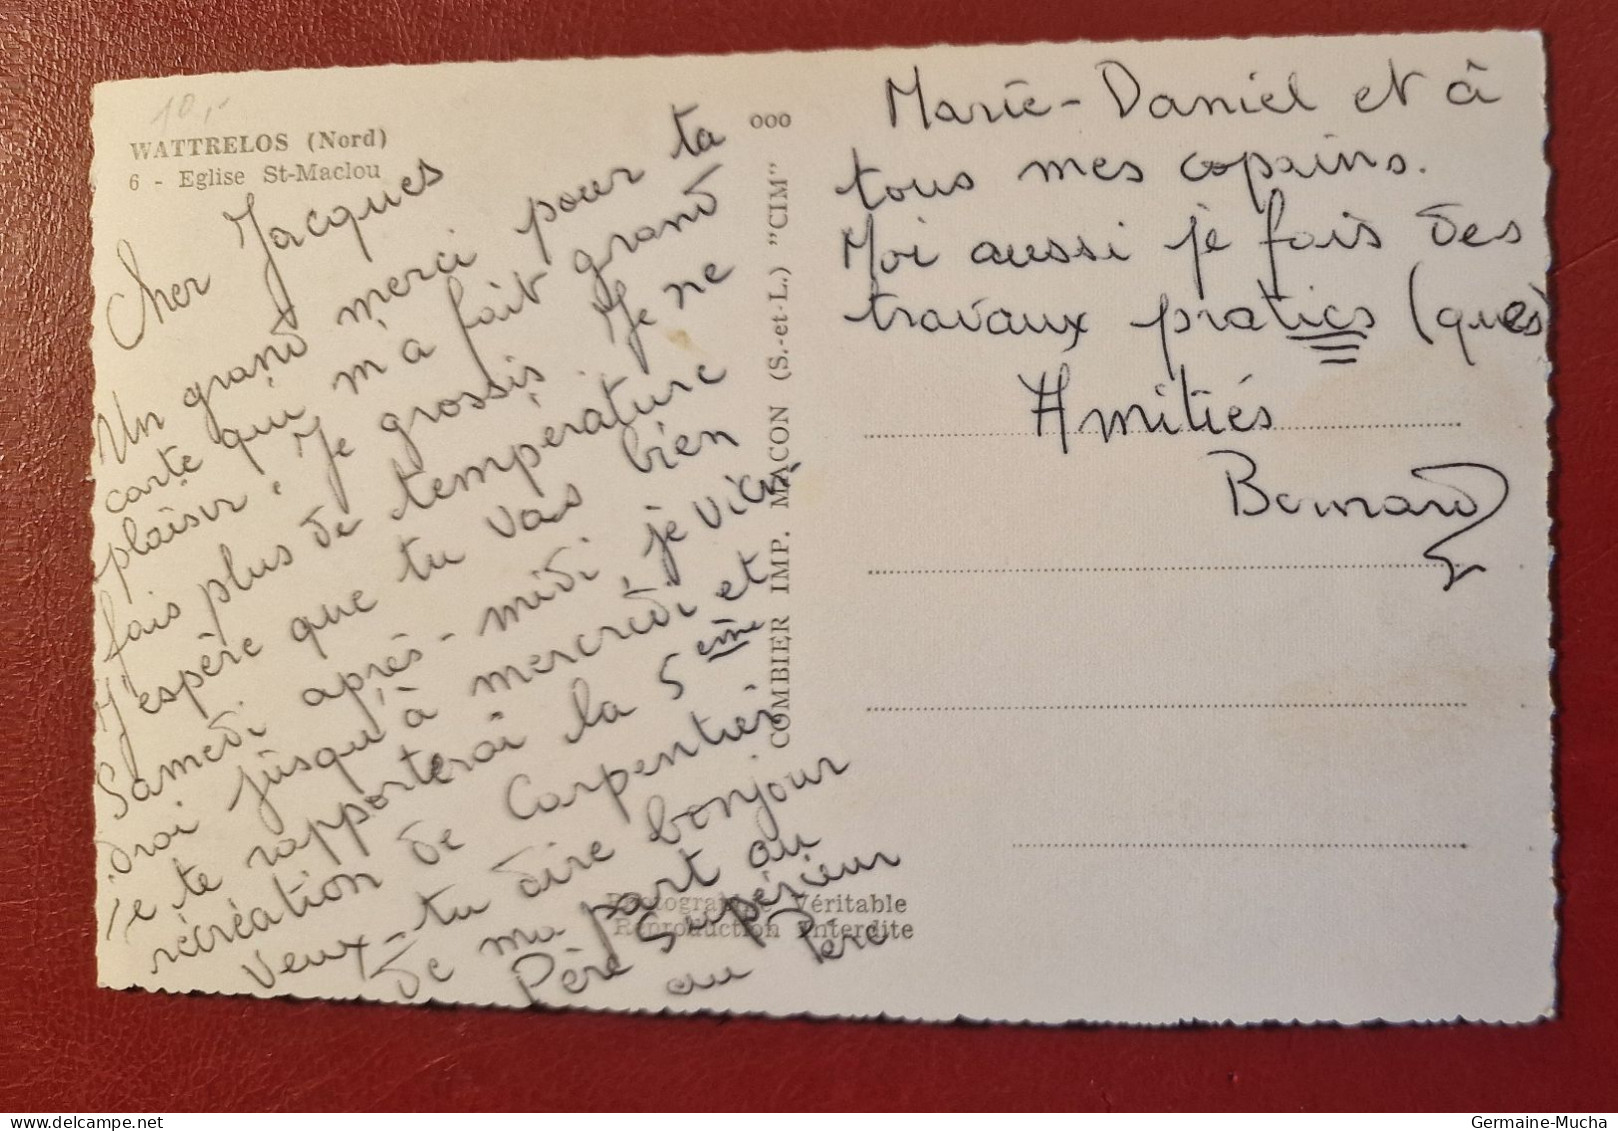 10,-
WATTRELOS (Nord)
6 - Eglise St-Maclou
Cher Jacques
Un grand merci pour ta
carte qui m'a fait grand
plaisir. Je grossis. Je ne
fais plus de température
J'espère que tu vas bien
Samedi après-midi, je
drai jusqu'à mercredi et
Je te rapporterai la 5ème
récréation de Carpentier
Veux-tu dire bonjour
de ma part au
Père Supérieur
au Père
COMBIER IMP. MACON (S.-et-L.) "CIM"
ooo
Photographie Véritable
Reproduction Interdite
Marie-Daniel et à
tous mes copains.
Moi aussi je fais des
travaux pratics (ques)
Amitiés
Bernard
Germaine-Mucha